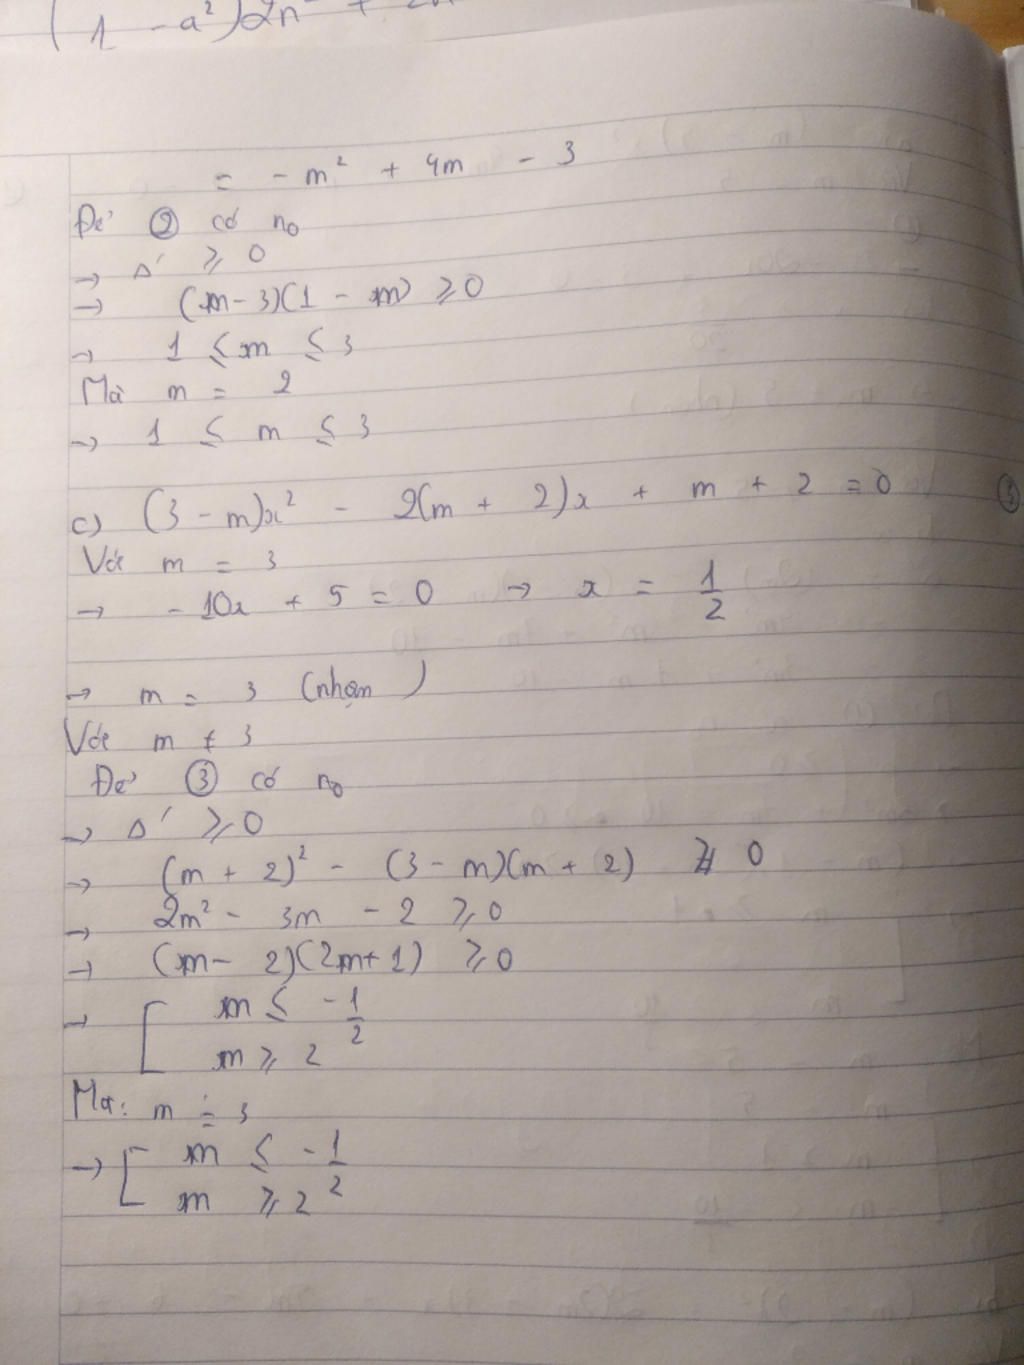 (1 - a²)2n
= - m² + 4m - 3
Để ② có n₀
→ Δ' ⩾ 0
→ (m - 3)(1 - m) ⩾ 0
→ 1 ≤ m ≤ 3
Mà m = 2
→ 1 ≤ m ≤ 3
c) (3 - m)x² - 2(m + 2)x + m + 2 = 0 ③
Với m = 3
→ - 10x + 5 = 0 → x = 1/2
→ m = 3 (nhận)
Với m ≠ 3
Để ③ có n₀
→ Δ' ⩾ 0
→ (m + 2)² - (3 - m)(m + 2) ⩾ 0
→ 2m² - 3m - 2 ⩾ 0
→ (m - 2)(2m + 1) ⩾ 0
→ [ m ≤ - 1/2
m ⩾ 2
Mà: m = 3
→ [ m ≤ - 1/2
m ⩾ 2